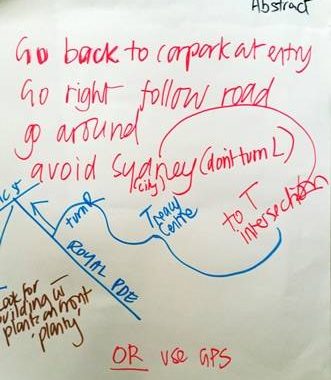 Abstract
Go back to carpark at entry
Go right follow road
go around
avoid Sydney (don't turn L)
(city)
to T
intersection
turn R
Centre
ROYAL PDE
Look for
building w
plants on front
'planty'
OR use GPS